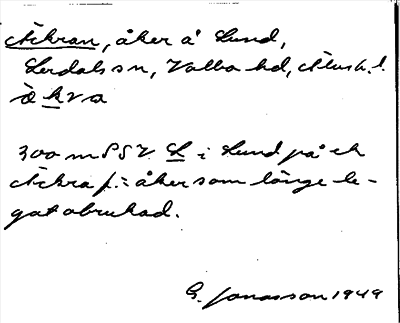 Åkran, åker å Lund,
Lerdals sn, Valbo hd, Älvsb. l.
å̀ k r a
300 m SSV. L i Lund på ek
Åkra f. = åker som länge le-
gat obrukad.
G. Jonasson 1949